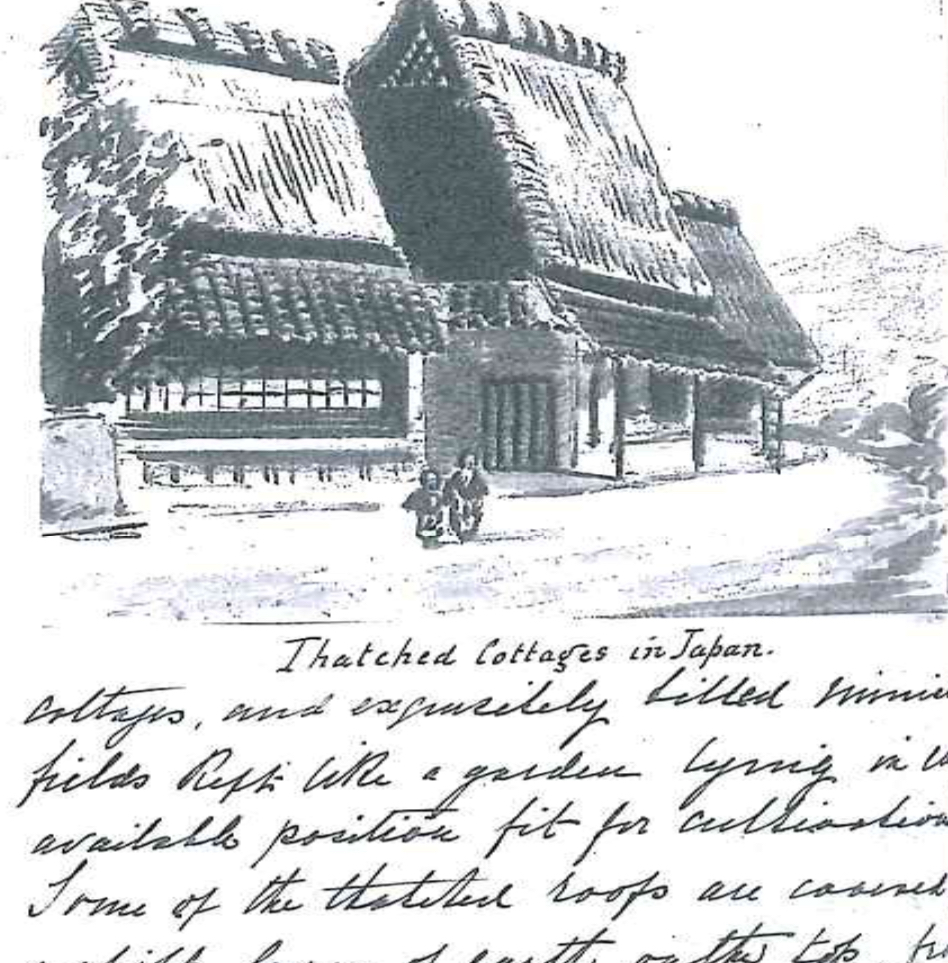 Thatched Cottages in Japan.
cottages, and exquisitely tilled minia
fields kept like a garden lying in
available position fit for cultivation
Some of the thatched roofs are covered
layer of earth on the top,